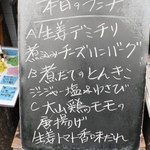 本日のランチ
A 生姜デミチリ
煮込チーズハンバーグ
B 煮たてのとんき
ジンジャー塩&わさび
C 大山鶏のモモの
唐揚げ
生姜トマト香味だれ